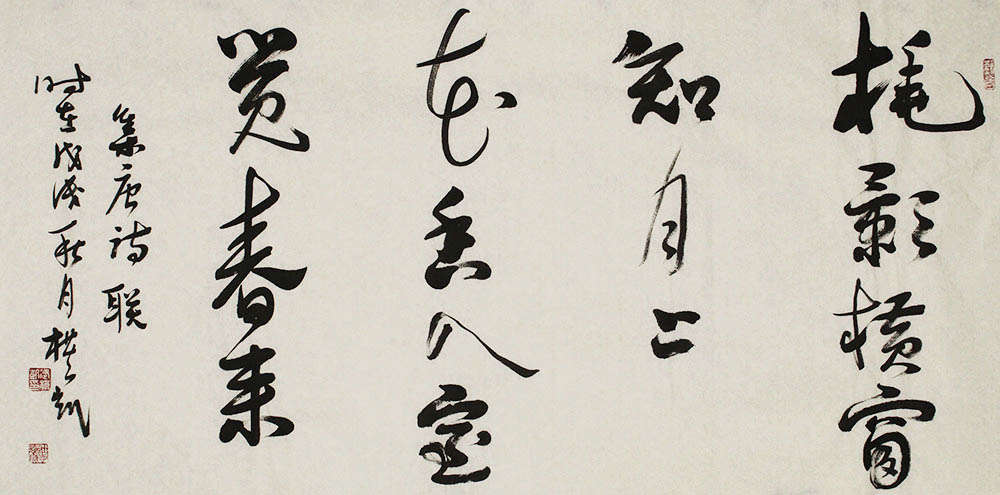 梅影横窗
知月上
花香入室
觉春来
集唐诗联
时在戊戌秋月